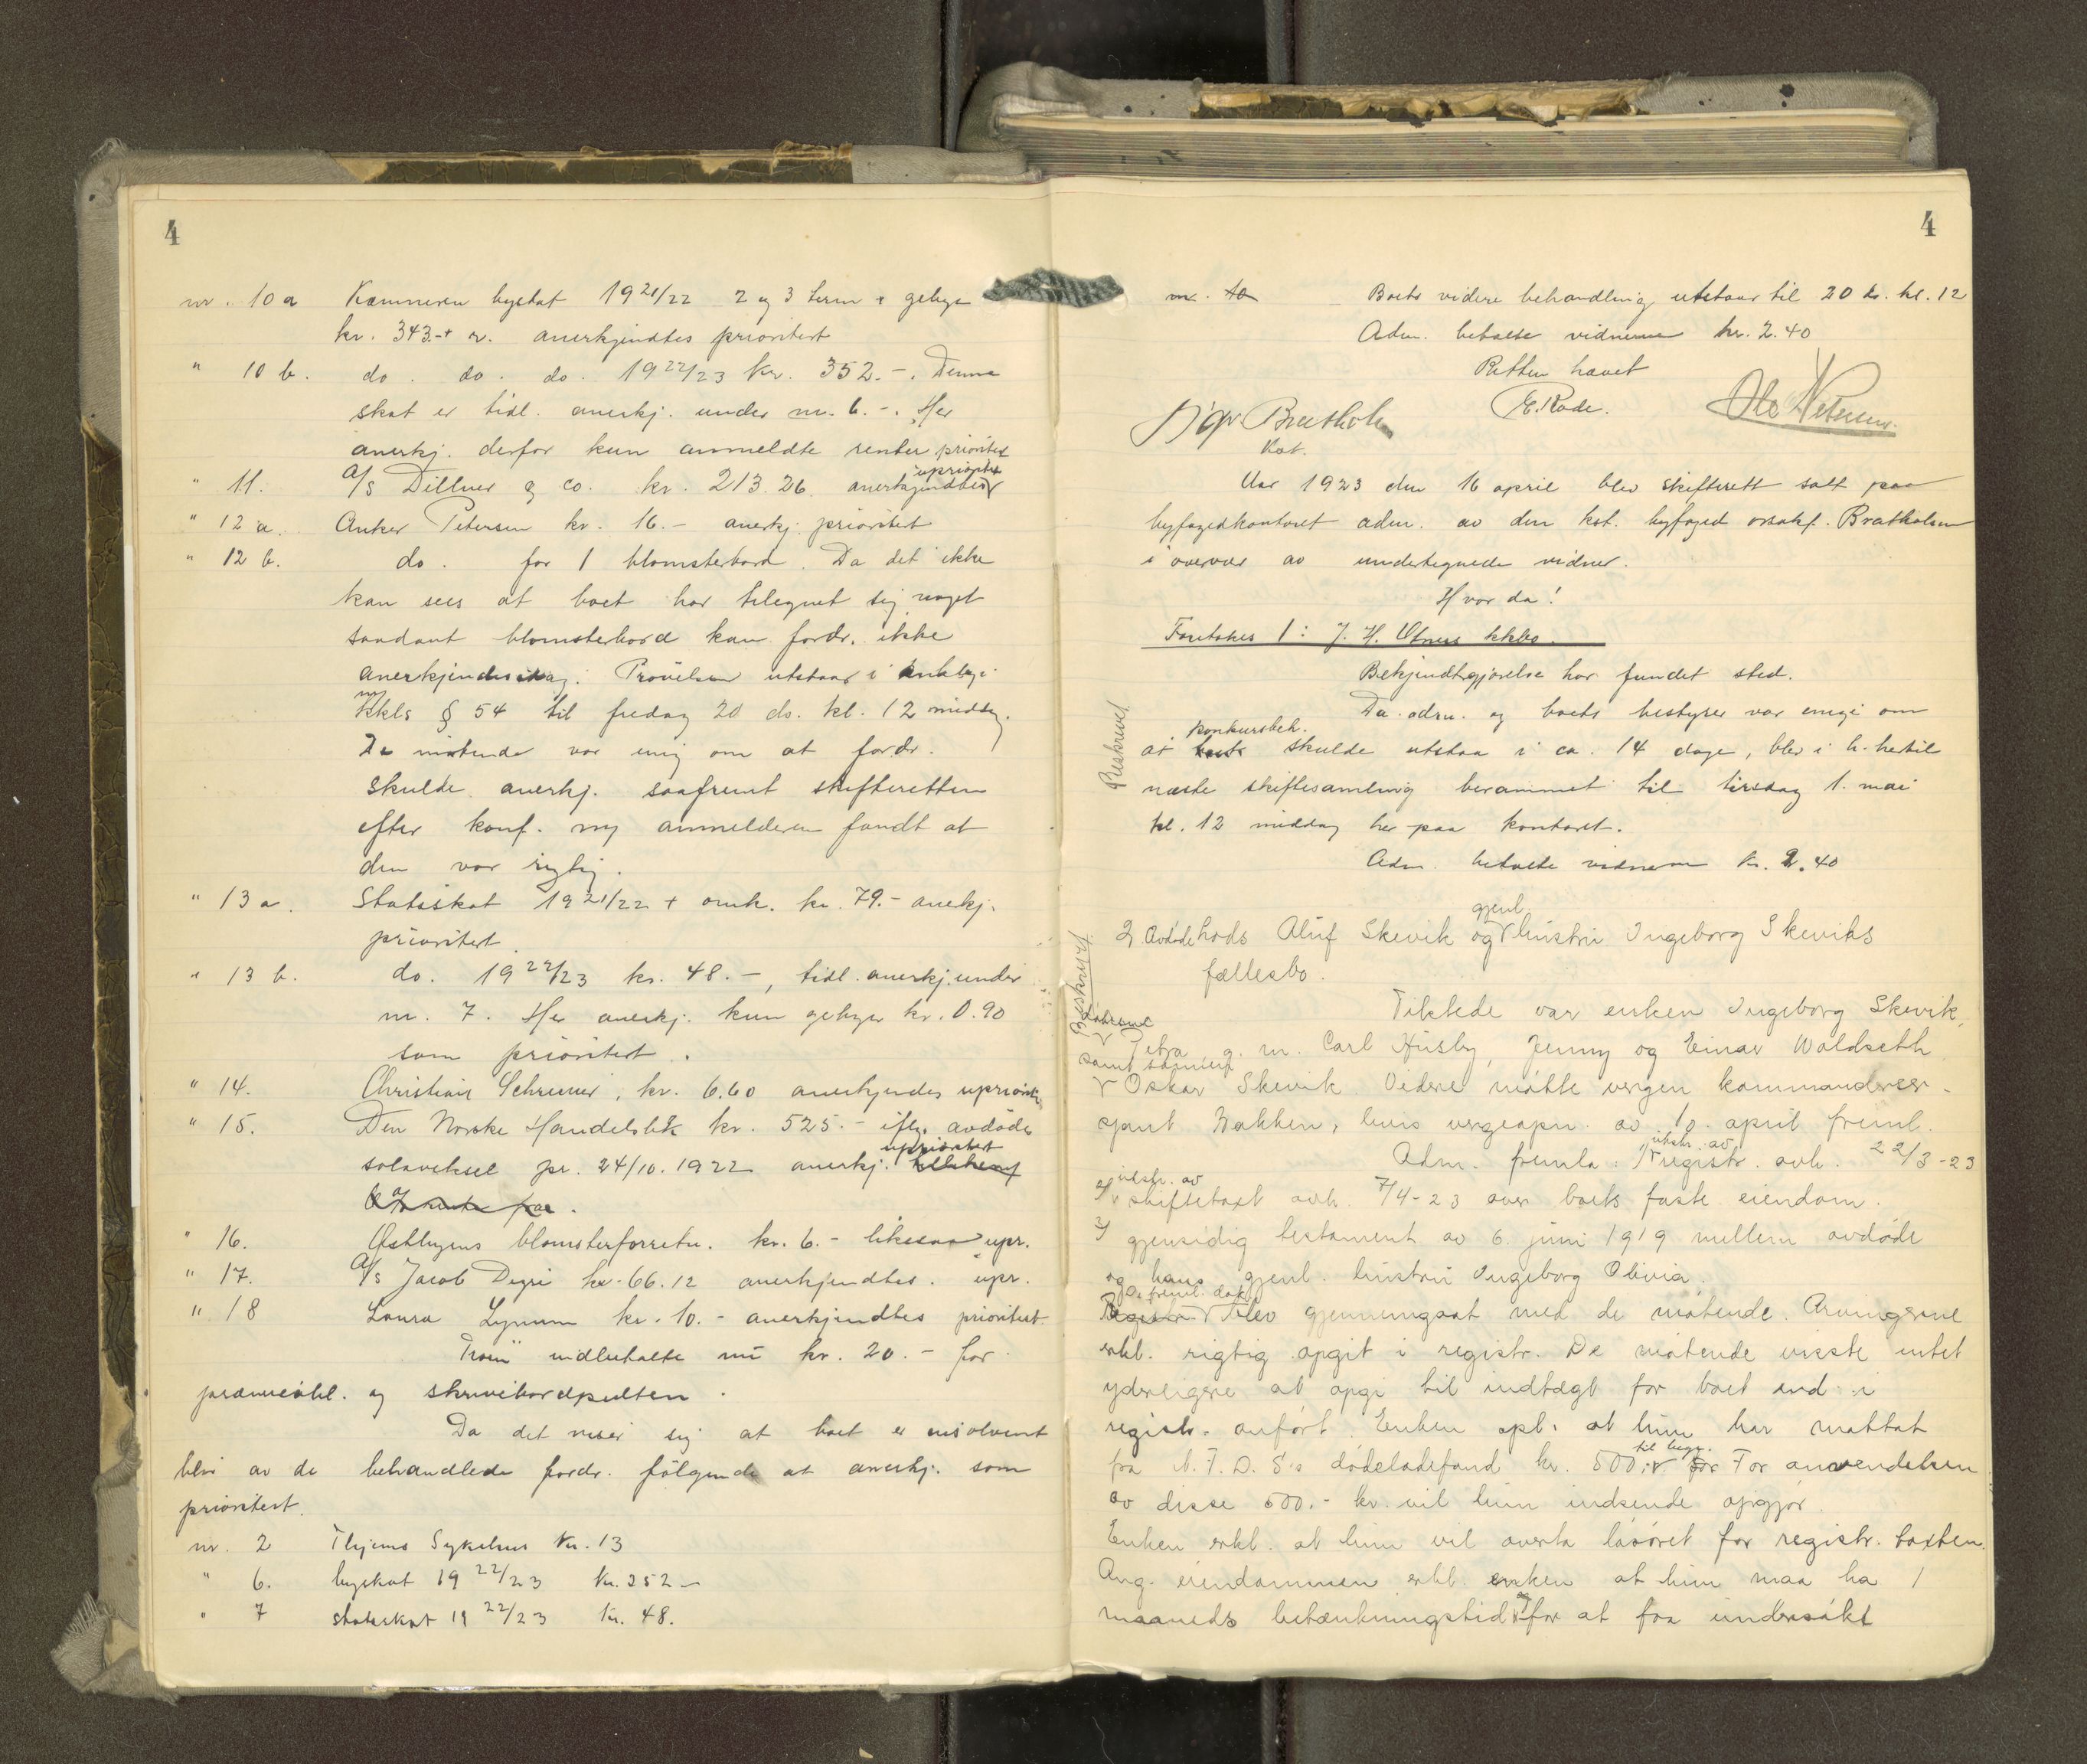 4
nr. 10 a Kæmneren byskat 19 21/22 2 og 3 term + gebyr
kr. 343.- + r. anerkjendtes prioritert
" 10 b. do. do. do. 19 22/23 kr. 352.-. Denne
skat er tidl. anerkj. under nr. 6.-. Her
anerkj. derfor kun anmeldte renter prioritet
uprioritet
" 11. A/S Dillner og co. kr. 213.26 anerkjendtes
" 12 a. Anker Petersen kr. 16.- anerkj. prioritert
" 12 b. do. for 1 blomsterbord. Da det ikke
kan sees at boet har tilegnet sig noget
saadant blomsterbord kan fordr. ikke
anerkjendes idag. Prøvelsen utstaar i
kkls § 54 til fredag 20 ds. kl. 12 middag.
De møtende var enig om at fordr.
skulde anerkj. saafremt skifteretten
efter konf. m/ anmelderen fandt at
den var rigtig.
" 13 a. Statsskat 19 21/22 + omk. kr. 79.- anerkj.
prioritert.
" 13 b. do. 19 22/23 kr. 48.-, tidl. anerkj. under
nr. 7. Her anerkj. kun gebyr kr. 0.90
som prioritert.
" 14. Christian Schreiner, kr. 6.60 anerkjendes uprioritr.
" 15. Den Norske Handelsbk kr. 525.- iflg. avdødes
uprioritert
solaveksel pr. 24/10. 1922 anerkj.
" 16. Østbyens blomsterforretn. kr. 6.- likesaa upr.
" 17. A/S Jacob Digre kr. 66.12 anerkjendtes. upr.
" 18 Laura Lynum kr. 10.- anerkjendtes prioritert.
indbetalte nu kr. 20.- for
og skrivebordpulten.
Da det viser sig at boet er insolvent
blir av de behandlede fordr. følgende at anerkj. som
prioritert.
nr. 2 Thjems Sykehus kr. 13
" 6. byskat 19 22/23 kr. 352 -
" 7 statsskat 19 22/23 kr. 48.
4
nr. 10 Boets videre behandling utstaar til 20 ds. kl. 12
Adm. betalte vidnerne kr. 2.40
Retten hævet
Bratholm
Kst.
E. Rode. Ole Petersen
Aar 1923 den 16 april blev skifterett satt paa
byfogedkontoret adm. av den kst. byfoged orsakf. Bratholm
i overvær av undertegnede vidner.
Hvor da!
Foretokes 1: J. H. Otnes kkbo.
Bekjendtgjørelse har fundet sted.
Da adm. og boets bestyrer var enige om
Beskrevet
konkursbeh.
at boets skulde utstaa i ca. 14 dage, blev i h. hertil
næste skiftesamling berammet til tirsdag 1. mai
kl. 12 middag her paa kontoret.
Adm. betalte vidnerne kr. 2.40
gjenl.
2 Avdøde hods Aluf Skevik og hustru Ingeborg Skeviks
fællesbo.
Beskrevet
Tilstede var enken Ingeborg Skevik,
døtrene
Petra g. m. Carl Husby, Jenny og Einar Woldseth
samt sønnen
Oskar Skevik. Videre møtte vergen kommandérser-
sjant Bakken, hvis vergeopn. av 10. april freml.
Adm. fremla: 1/ utskr. av registr. avh. 22/3-23
2/ utskr. av
skiftetaxt avh. 7/4-23 over boets faste eiendom.
3/ gjensidig testament av 6. juni 1919 mellem avdøde
og hans gjenl. hustru Ingeborg Olivia.
De freml. dok.
Registr. blev gjennemgaat med de møtende. Arvingerne
erkl. rigtig opgit i registr. De møtende visste intet
yderligere at opgi til indtægt for boet end i
registr. anført. Enken opl. at hun har mottat
til begr.
fra N. T. D. S's dødeladefond kr. 500,- for For anvendelsen
av disse 500.- kr. vil hun indsende opgjør.
Enken erkl. at hun vil overta løsøret for registr. taxten.
Ang. eiendommen erkl. enken at hun maa ha 1
maaneds betænkningstid for at faa undersøkt